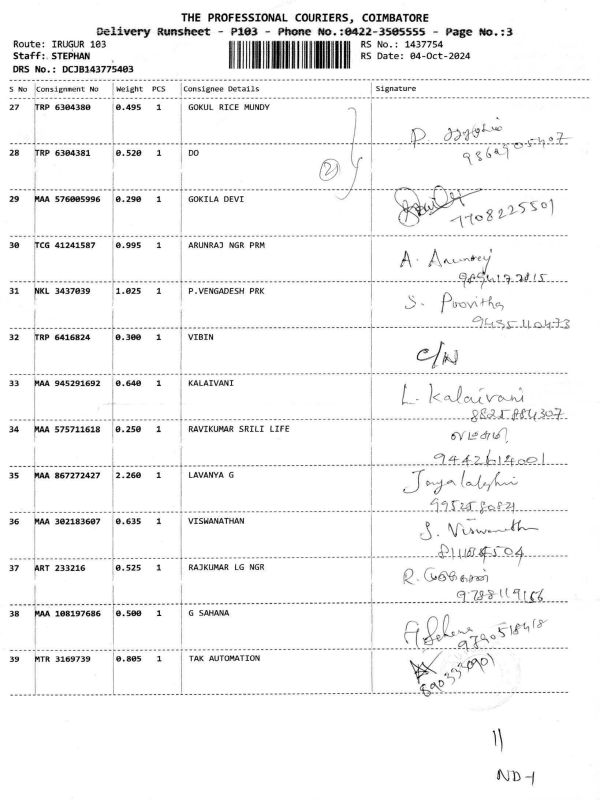 THE PROFESSIONAL COURIERS, COIMBATORE
Delivery Runsheet - P103 - Phone No.:0422-3505555 - Page No.:3
Route: IRUGUR 103 RS No.: 1437754
Staff: STEPHAN RS Date: 04-Oct-2024
DRS No.: DCJB143775403
S No Consignment No Weight PCS Consignee Details Signature
27 TRP 6304380 0.495 1 GOKUL RICE MUNDY
28 TRP 6304381 0.520 1 DO
(2)
29 MAA 576005996 0.290 1 GOKILA DEVI
7708225501
30 TCG 41241587 0.995 1 ARUNRAJ NGR PRM A.
31 NKL 3437039 1.025 1 P.VENGADESH PRK S. Poovitha
32 TRP 6416824 0.300 1 VIBIN C/N
33 MAA 945291692 0.640 1 KALAIVANI L. Kalaivani
34 MAA 575711618 0.250 1 RAVIKUMAR SRILI LIFE
35 MAA 867272427 2.260 1 LAVANYA G
36 MAA 302183607 0.635 1 VISWANATHAN
37 ART 233216 0.525 1 RAJKUMAR LG NGR R.
9788119156
38 MAA 108197686 0.500 1 G SAHANA
39 MTR 3169739 0.805 1 TAK AUTOMATION
11
ND-1